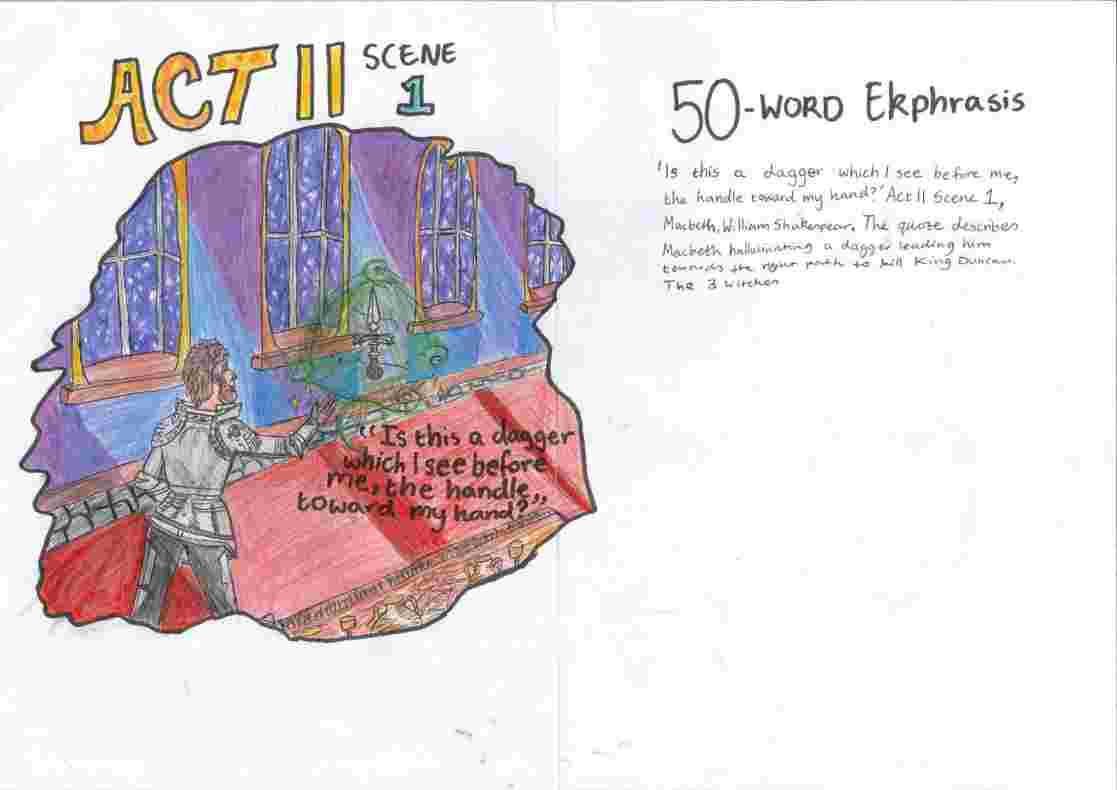 ACT II SCENE
1
"Is this a dagger
which I see before
me, the handle
toward my hand?"
50-WORD Ekphrasis
'Is this a dagger which I see before me,
the handle toward my hand?' Act II Scene 1,
Macbeth, William Shakespear. The quote describes
Macbeth hallucinating a dagger leading him
towards the right path to kill King Duncan.
The 3 witches